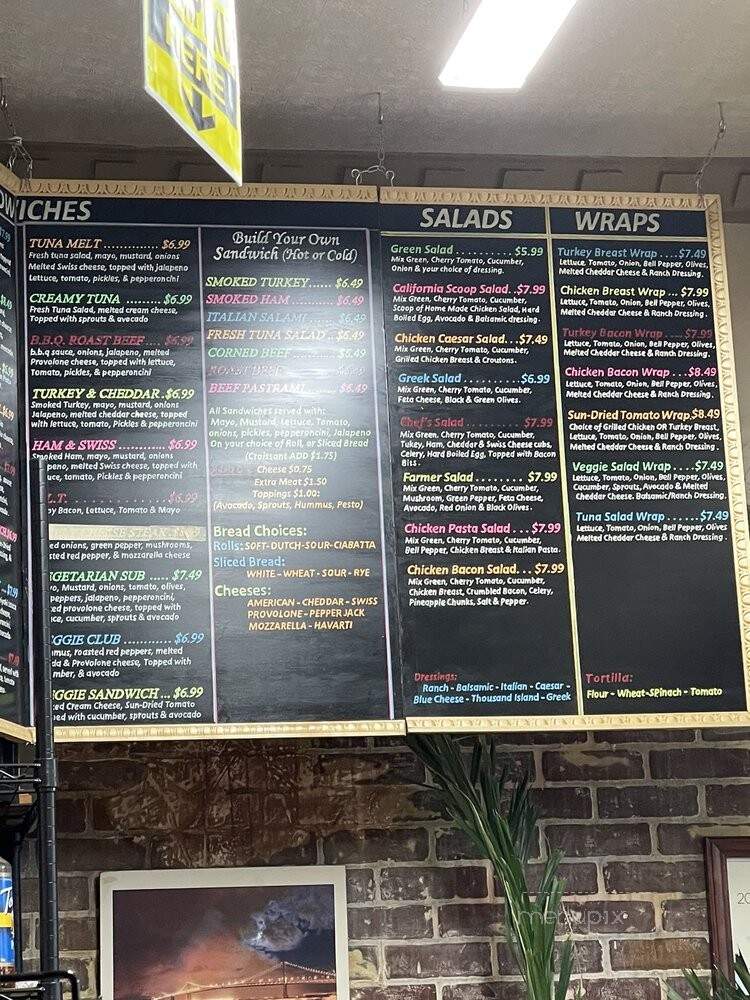 HERE
WICHES
TUNA MELT ............. $6.99
Fresh tuna salad, mayo, mustard, onions
Melted Swiss cheese, topped with jalapeno
Lettuce, tomato, pickles, & pepperoncini
CREAMY TUNA ........ $6.99
Fresh Tuna Salad, melted cream cheese,
Topped with sprouts & avocado
B.B.Q. ROAST BEEF ... $6.99
b.b.q sauce, onions, jalapeno, melted
Provolone cheese, topped with lettuce,
Tomato, pickles, & pepperoncini
TURKEY & CHEDDAR .$6.99
Smoked Turkey, mayo, mustard, onions
Jalapeno, melted cheddar cheese, topped
with lettuce, tomato, Pickles & pepperoncini
HAM & SWISS ............ $6.99
Smoked Ham, mayo, mustard, onions
peno, melted Swiss cheese, topped with
ce, tomato, Pickles & pepperoncini
L.T. ................. $6.99
y Bacon, Lettuce, Tomato & Mayo
CHEESE STEAK
ed onions, green pepper, mushrooms,
sted red pepper, & mozzarella cheese
GETARIAN SUB ..... $7.49
yo, Mustard, onions, tomato, olives,
peppers, jalapeno, pepperoncini,
ed provolone cheese, topped with
ce, cucumber, sprouts & avocado
GGIE CLUB ............ $6.99
mus, roasted red peppers, melted
da & Provolone cheese, Topped with
mber, & avocado
GGIE SANDWICH ... $6.99
ed Cream Cheese, Sun-Dried Tomato
ed with cucumber, sprouts & avocado
Build Your Own
Sandwich (Hot or Cold)
SMOKED TURKEY...... $6.49
SMOKED HAM ........... $6.49
ITALIAN SALAMI ...... $6.49
FRESH TUNA SALAD .. $6.49
CORNED BEEF .......... $6.49
ROAST BEEF ............ $6.49
BEEF PASTRAMI ........ $6.49
All Sandwiches served with:
Mayo, Mustard, Lettuce, Tomato,
onions, pickles, pepperoncini, Jalapeno
On your choice of Roll, or Sliced Bread
(Croisant ADD $1.75)
Cheese $0.75
Extra Meat $1.50
Toppings $1.00:
(Avocado, Sprouts, Hummus, Pesto)
Bread Choices:
Rolls: SOFT-DUTCH-SOUR-CIABATTA
Sliced Bread:
WHITE - WHEAT - SOUR - RYE
Cheeses:
AMERICAN - CHEDDAR - SWISS
PROVOLONE - PEPPER JACK
MOZZARELLA - HAVARTI
SALADS
Green Salad .......... $5.99
Mix Green, Cherry Tomato, Cucumber,
Onion & your choice of dressing.
California Scoop Salad..$7.99
Mix Green, Cherry Tomato, Cucumber,
Scoop of Home Made Chicken Salad, Hard
Boiled Egg, Avocado & Balsamic dressing.
Chicken Caesar Salad...$7.49
Mix Green, Cherry Tomato, Cucumber,
Grilled Chicken Breast & Croutons.
Greek Salad .......... $6.99
Mix Green, Cherry Tomato, Cucumber,
Feta Cheese, Black & Green Olives.
Chef's Salad .......... $7.99
Mix Green, Cherry Tomato, Cucumber,
Tukey, Ham, Cheddar & Swiss Cheese cubs,
Celery, Hard Boiled Egg, Topped with Bacon
Bits.
Farmer Salad ......... $7.99
Mix Green, Cherry Tomato, Cucumber,
Mushroom, Green Pepper, Feta Cheese,
Avocado, Red Onion & Black Olives.
Chicken Pasta Salad ... $7.99
Mix Green, Cherry Tomato, Cucumber,
Bell Pepper, Chicken Breast & Italian Pasta.
Chicken Bacon Salad... $7.99
Mix Green, Cherry Tomato, Cucumber,
Chicken Breast, Crumbled Bacon, Celery,
Pineapple Chunks, Salt & Pepper.
Dressings:
Ranch - Balsamic - Italian - Caesar -
Blue Cheese - Thousand Island - Greek
WRAPS
Turkey Breast Wrap ....$7.49
Lettuce, Tomato, Onion, Bell Pepper, Olives,
Melted Cheddar Cheese & Ranch Dressing.
Chicken Breast Wrap ... $7.99
Lettuce, Tomato, Onion, Bell Pepper, Olives,
Melted Cheddar Cheese & Ranch Dressing.
Turkey Bacon Wrap .... $7.99
Lettuce, Tomato, Onion, Bell Pepper, Olives,
Melted Cheddar Cheese & Ranch Dressing.
Chicken Bacon Wrap ...$8.49
Lettuce, Tomato, Onion, Bell Pepper, Olives,
Melted Cheddar Cheese & Ranch Dressing.
Sun-Dried Tomato Wrap.$8.49
Choice of Grilled Chicken OR Turkey Breast,
Lettuce, Tomato, Onion, Bell Pepper, Olives,
Melted Cheddar Cheese & Ranch Dressing.
Veggie Salad Wrap ....$7.49
Lettuce, Tomato, Onion, Bell Pepper, Olives,
Cucumber, Sprouts, Avocado & Melted
Cheddar Cheese. Balsamic/Ranch Dressing.
Tuna Salad Wrap .......$7.49
Lettuce, Tomato, Onion, Bell Pepper, Olives,
Melted Cheddar Cheese & Ranch Dressing.
Tortilla:
Flour - Wheat-SPinach - Tomato
menupix
20